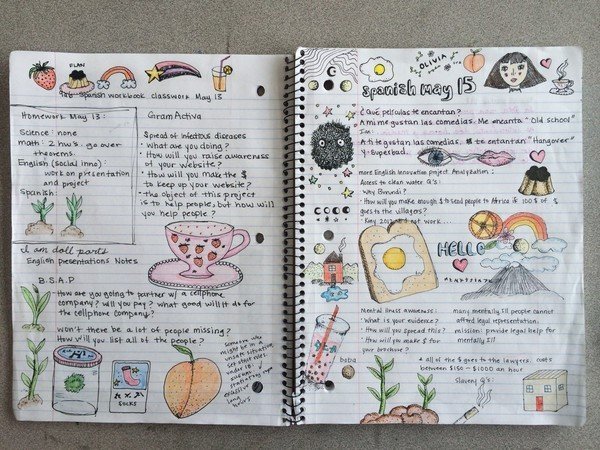 FLAN
Spanish workbook classwork May 15
Homework May 13:
Science: none
math: 2 hw's. go over
theorems.
English (Social Inno):
work on presentation
and project
Spanish:
Gram Activa
Spread of infectious diseases
• what are you doing?
• How will you raise awareness
of your website?
• How will you make the $
to keep up your website?
• the object of this project
is to help people, but how will
you help people?
I am doll parts
English presentations Notes
B.S.A.P
How are you going to partner w/ a cellphone
company? will you pay? what good will it do for
the cellphone company?
Won't there be a lot of people missing?
How will you list all of the people?
someone who
might be in an
unsafe situation,
under 18:
excessive
long
hours
SOCKS
OLIVIA
Spanish May 15
¿Qué películas te encantan?
A mi me gustan las comedias. Me encanta "Old school"
A ti te gustan las comedias. te encantan "Hangover"
y "Superbad.
more English Innovation project Analyzation:
Access to clean water Q's:
• Why Burundi?
• How will you make enough $ to send people to Africa if 100% of $
goes to the villagers?
• Kony 2012 did not work....
HELLO
Mental illness awareness:
• What is your evidence?
• How will you spread this?
• How will you make $ for
your brochure?
many mentally ill people cannot
afford legal representation.
mission: provide legal help for
mentally ill
boba
* all of the $ goes to the lawyers. costs
between $150 - $1000 an hour
Slavery Q's: